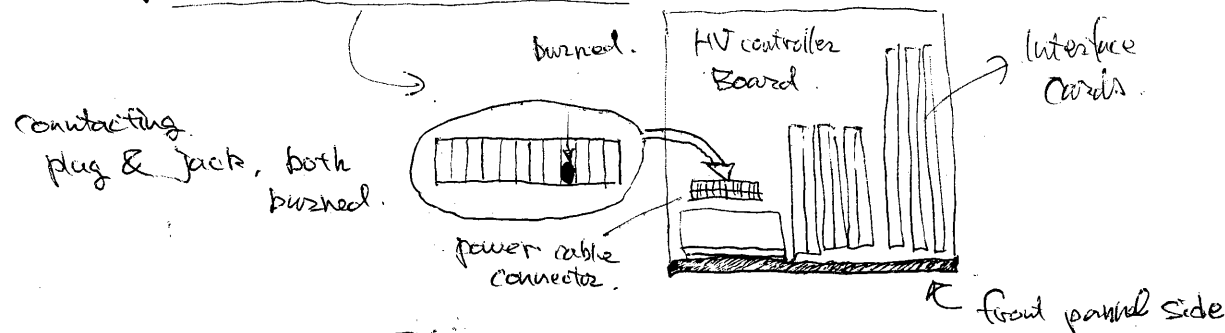 burned.
HV controller
Board.
Interface
Cards.
conntacting
plug & jack, both
burned.
power cable
connector.
front pannel side